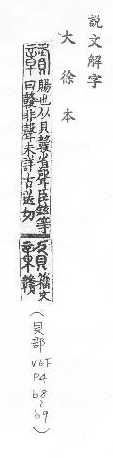 説文解字
大徐本
賜也从貝竷省聲臣鉉等
曰竷非聲未詳古送切
籀文
贛
(貝部
V6下
P4